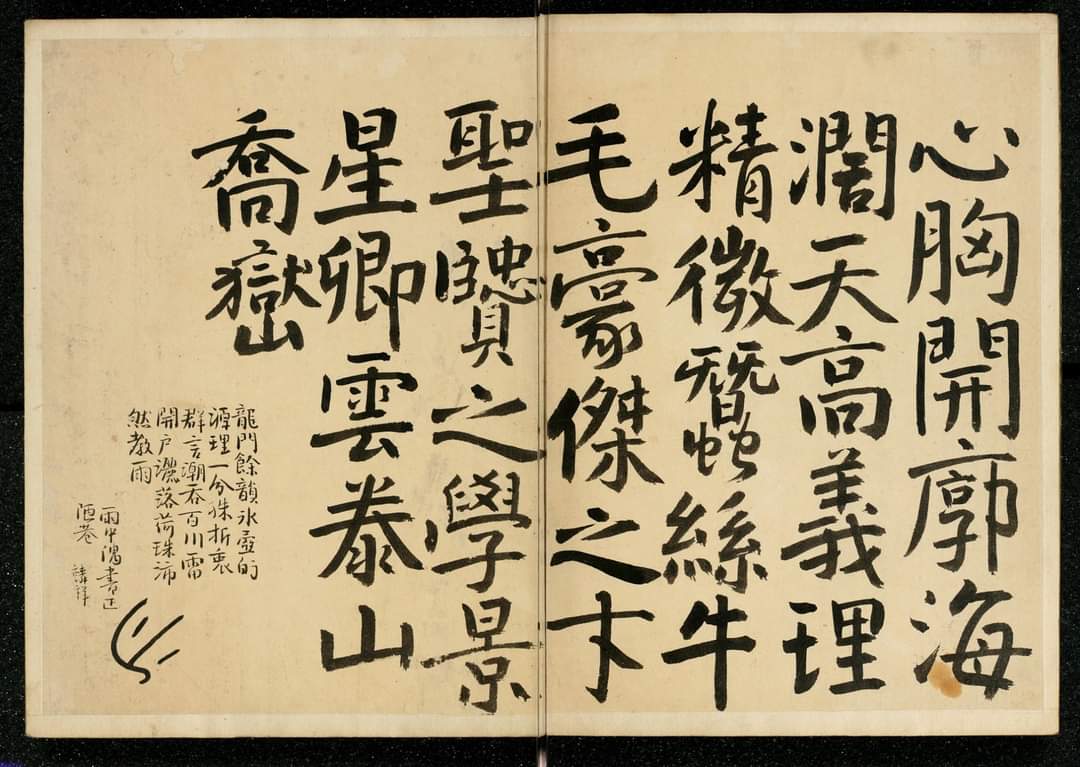 心胸開廓海
濶天高義理
精微蠶絲牛
毛豪傑之才
聖賢之學景
星卿雲泰山
喬嶽
龍門餘韻氷壺的
源理一分殊折衷
群言潮吞百川雷
開戶灑落荷珠沛
然教雨
雨中偶書
陋巷